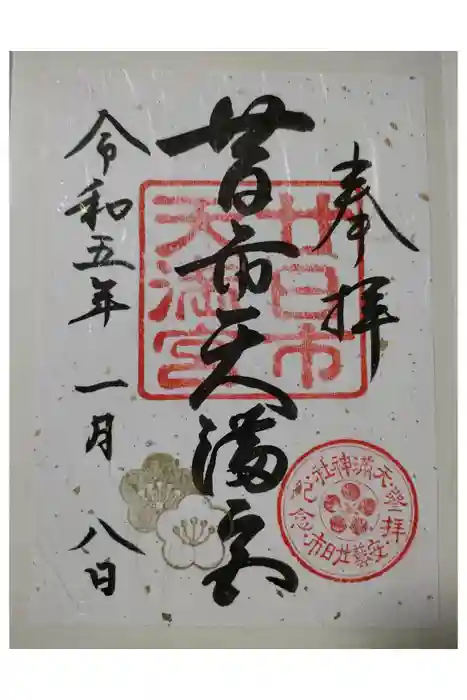 奉拝
廿日市天満宮
令和五年 一月 八日
廿日市
天満宮
天満神社
登拝
安藝廿日市